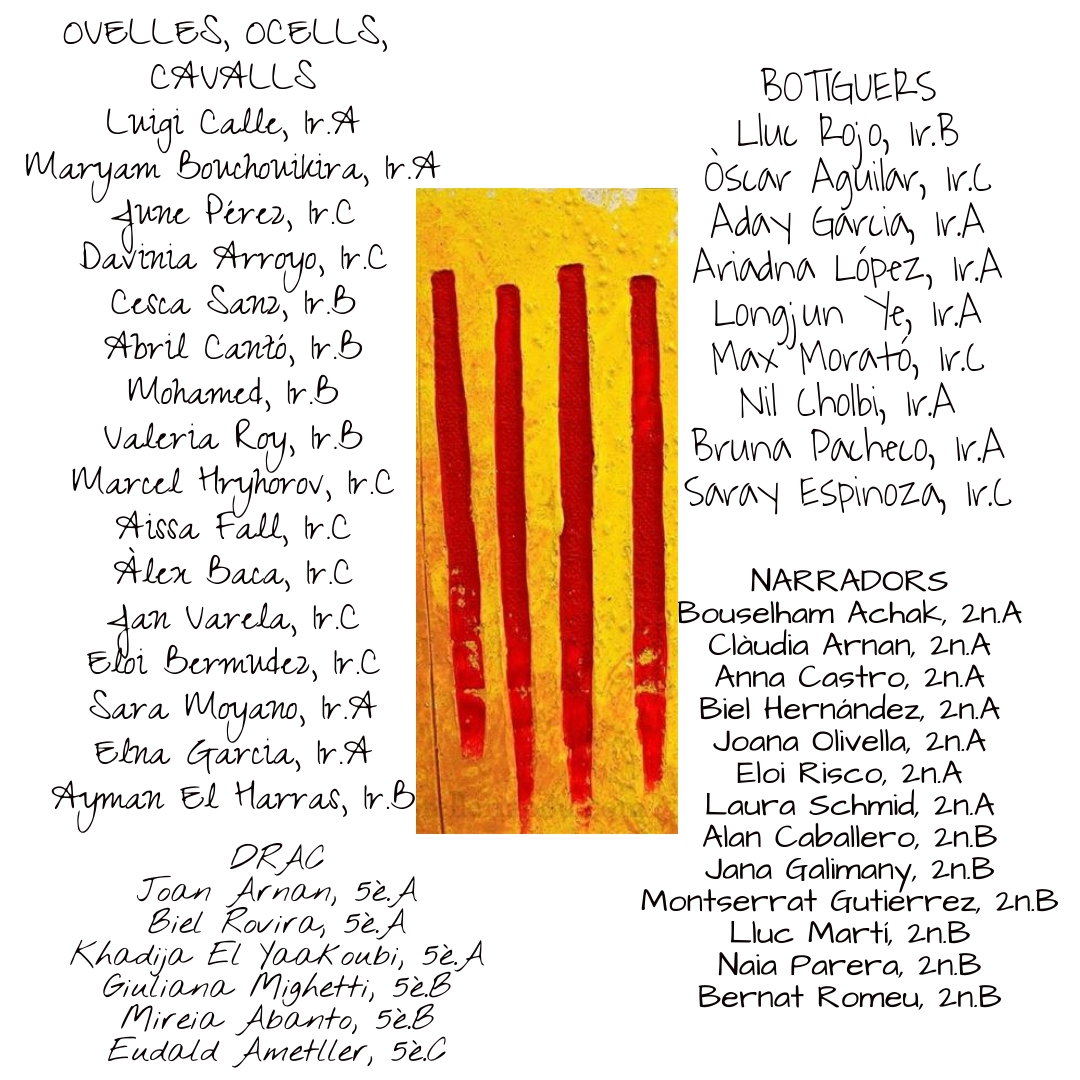 OVELLES, OCELLS,
CAVALLS
Luigi Calle, 1r.A
Maryam Bouchouikira, 1r.A
June Pérez, 1r.C
Davinia Arroyo, 1r.C
Cesca Sanz, 1r.B
Abril Cantó, 1r.B
Mohamed, 1r.B
Valeria Roy, 1r.B
Marcel Hryhorov, 1r.C
Aissa Fall, 1r.C
Àlex Baca, 1r.C
Jan Varela, 1r.C
Eloi Bermudez, 1r.C
Sara Moyano, 1r.A
Elna Garcia, 1r.A
Ayman El Harras, 1r.B
DRAC
Joan Arnan, 5è.A
Biel Rovira, 5è.A
Khadija El Yaakoubi, 5è.A
Giuliana Mighetti, 5è.B
Mireia Abanto, 5è.B
Eudald Ametller, 5è.C
BOTIGUERS
Lluc Rojo, 1r.B
Òscar Aguilar, 1r.C
Aday Garcia, 1r.A
Ariadna López, 1r.A
Longjun Ye, 1r.A
Max Morató, 1r.C
Nil Cholbi, 1r.A
Bruna Pacheco, 1r.A
Saray Espinoza, 1r.C
NARRADORS
Bouselham Achak, 2n.A
Clàudia Arnan, 2n.A
Anna Castro, 2n.A
Biel Hernández, 2n.A
Joana Olivella, 2n.A
Eloi Risco, 2n.A
Laura Schmid, 2n.A
Alan Caballero, 2n.B
Jana Galimany, 2n.B
Montserrat Gutiérrez, 2n.B
Lluc Martí, 2n.B
Naia Parera, 2n.B
Bernat Romeu, 2n.B